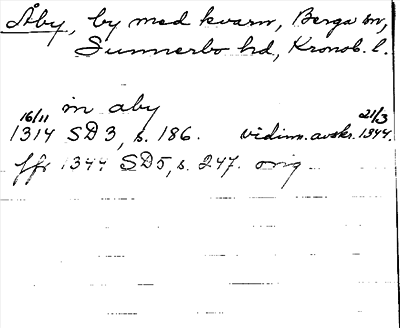 Åby, by med kvarn, Berga sn,
Sunnerbo hd, Kronob. l.
in aby
16/11 1314 SD3, s. 186. vidim. avskr. 21/3 1344.
ffr 1344 SD5, s. 247. orig.